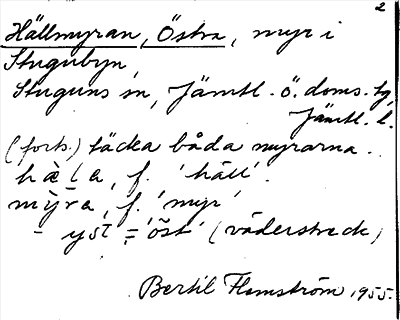 2
Hällmyran, Östra, myr i
Stugubyn
Stuguns sn, Jämtl. ö. doms. tg,
Jämtl. l.
(forts.) täcka båda myrarna.
hæla, f. 'häll'.
mỳra, f. 'myr'
- yst = 'öst' (väderstreck)
Bertil Flemström 1955.